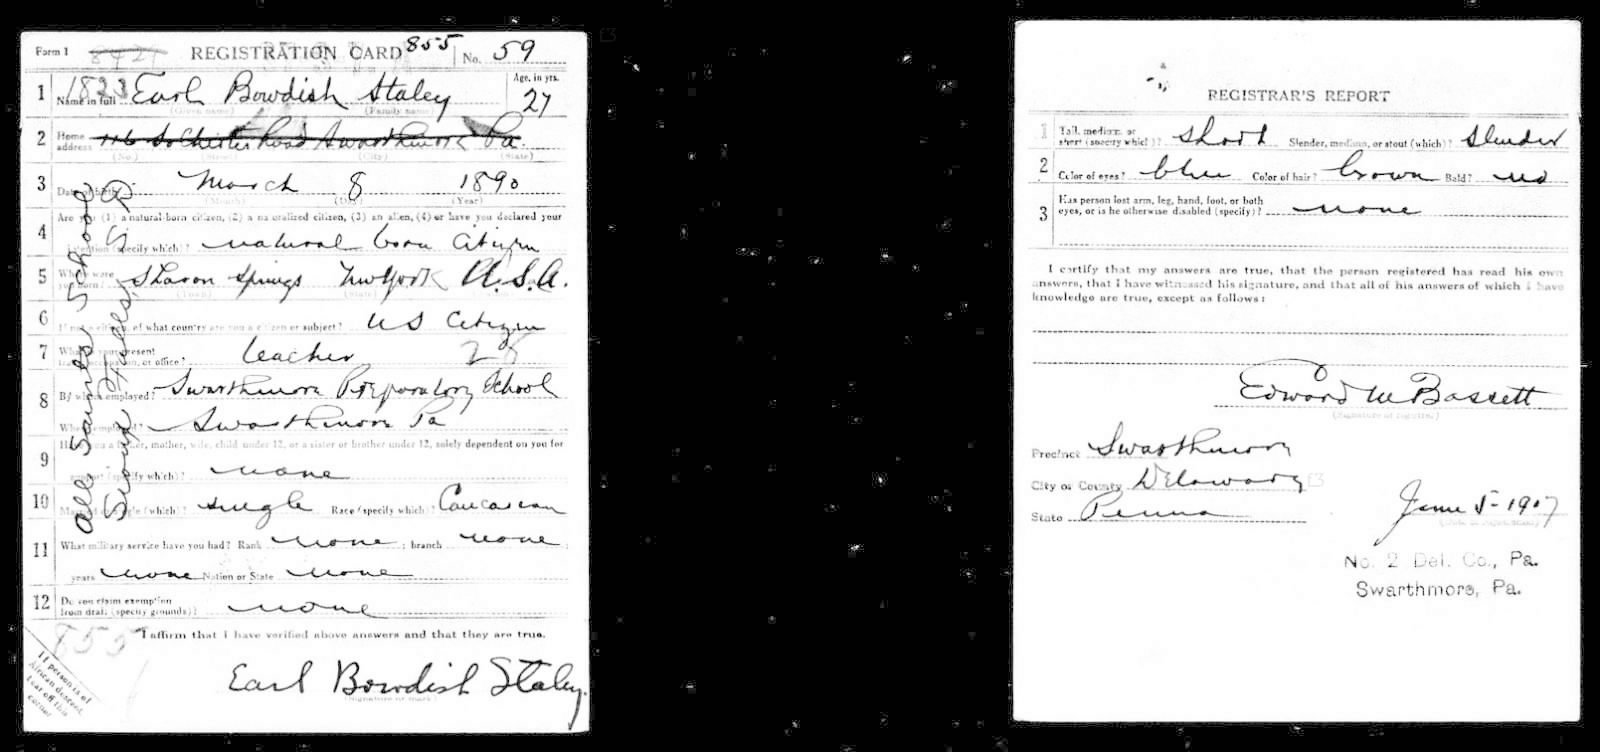 Form 1 REGISTRATION CARD 855 No. 59
1 1823 Name in full Earl Bowdish Staley Age, in yrs. 27
(Given name) (Family name)
2 Home address 116 So Chester Road Swarthmore Pa.
(No.) (Street) (City) (State)
3 Date of birth March 8 1890
(Month) (Day) (Year)
4 Are you (1) a natural-born citizen, (2) a naturalized citizen, (3) an alien, (4) or have you declared your
intention (specify which)? natural born citizen
5 Where were you born? Sharon Springs New York U.S.A.
(Town) (State)
6 If not a citizen, of what country are you a citizen or subject? US Citizen
7 What is your present trade, occupation, or office? teacher 28
8 By whom employed? Swarthmore Preparatory School
Where employed? Swarthmore Pa
9 Have you a father, mother, wife, child under 12, or a sister or brother under 12, solely dependent on you for
support (specify which)? none
10 Married or single (which)? single Race (specify which)? Caucasian
11 What military service have you had? Rank none; branch none;
years none Nation or State none
12 Do you claim exemption from draft (specify grounds)? none
I affirm that I have verified above answers and that they are true.
855
Earl Bowdish Staley.
(Signature or mark)
If person is of
African descent,
tear off this
corner
All Saints School
Sioux Falls, S D
REGISTRAR'S REPORT
1 Tall, medium, or short (specify which)? short Slender, medium, or stout (which)? slender
2 Color of eyes? blue Color of hair? brown Bald? no
3 Has person lost arm, leg, hand, foot, or both
eyes, or is he otherwise disabled (specify)? none
I certify that my answers are true, that the person registered has read his own
answers, that I have witnessed his signature, and that all of his answers of which I have
knowledge are true, except as follows:
Edward M Bassett
(Signature of registrar)
Precinct Swarthmore
City or County Delaware
State Penna
June 5-1917
No. 2 Del. Co., Pa.
Swarthmore, Pa.